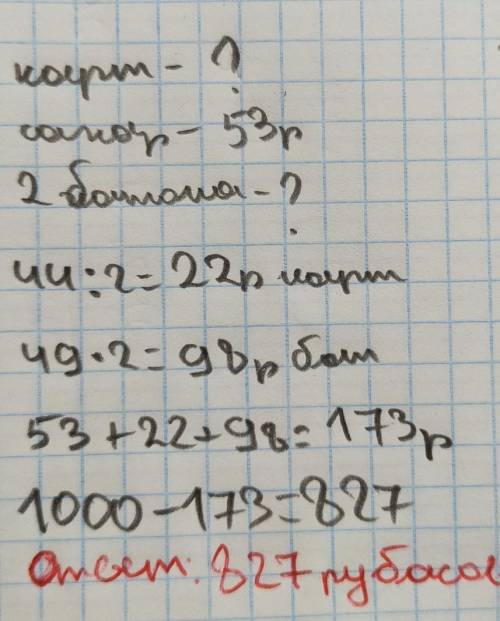 карт - ?
сахар - 53р
2 батона - ?
44:2=22р карт
49·2=98р бат
53+22+98=173р
1000-173=827
Ответ: 827 рубасов